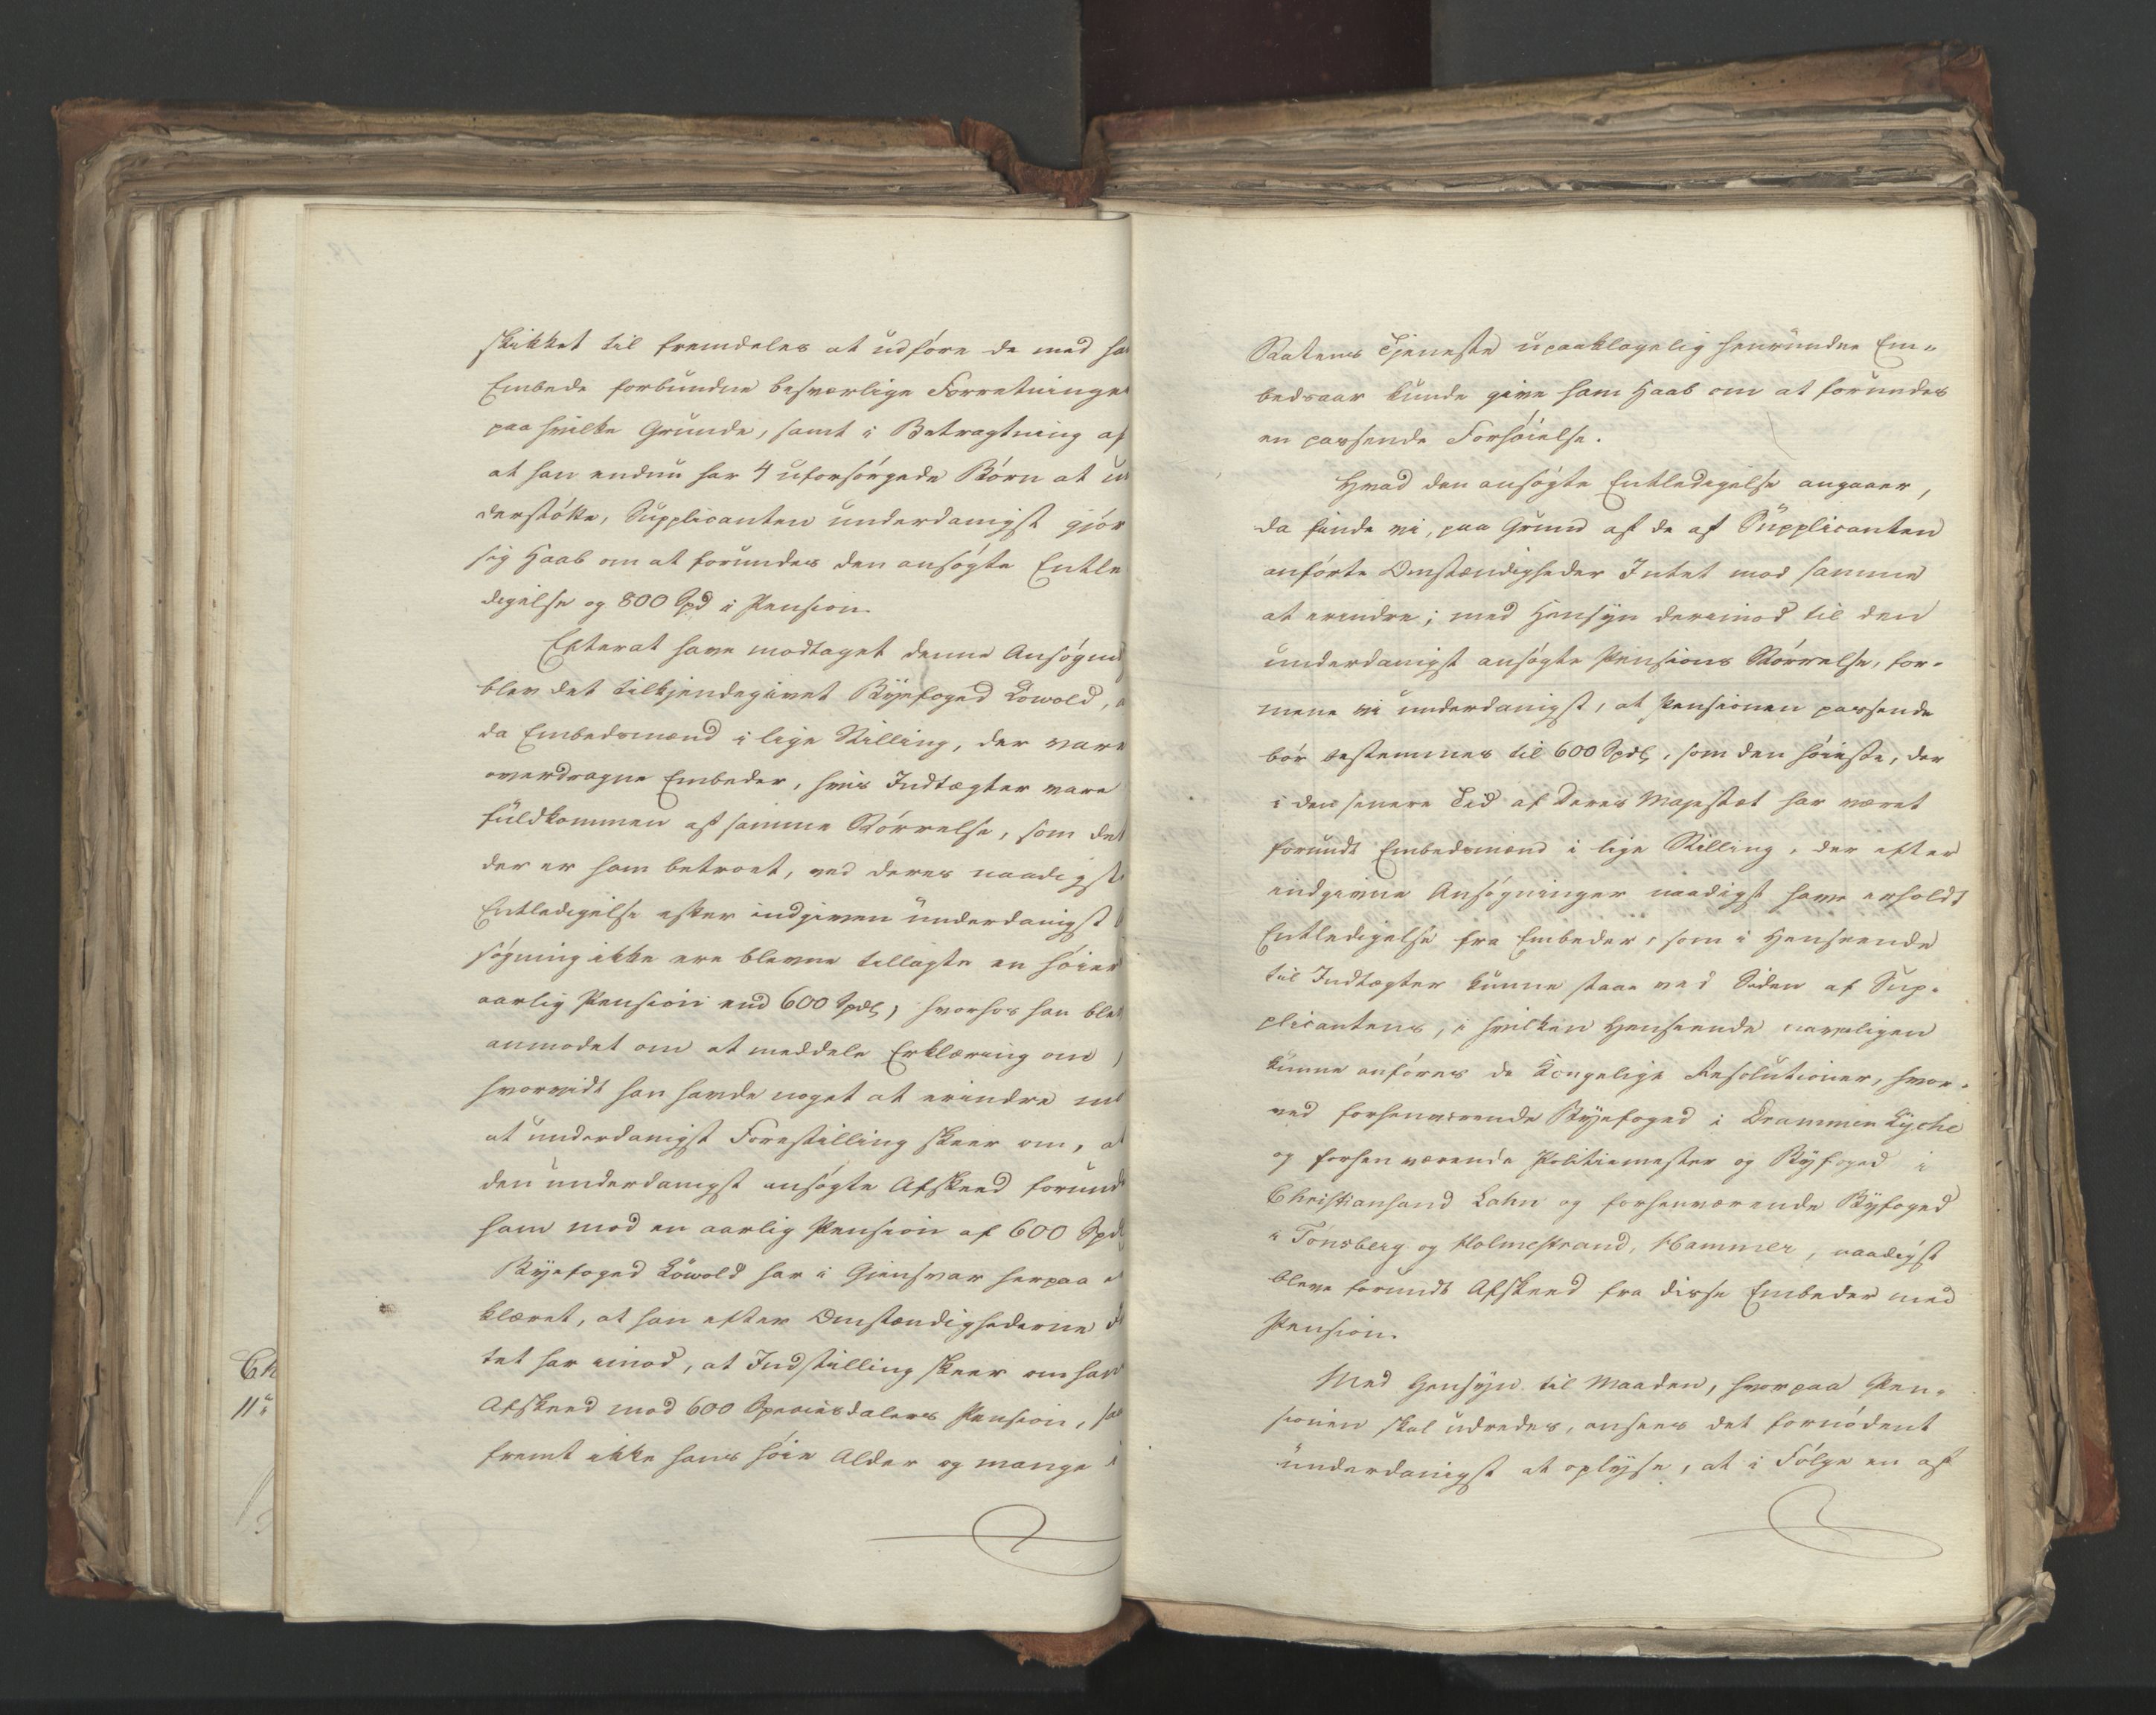 skikket til fremdeles at udføre de med ha
Embede forbundne besværlige Forretninger
paa hvilke Grunde, samt i Betragtning af
at han endnu har 4 uforsørgede Børn at un
derstøtte, Supplicanten underdanigst gjør
sig Haab om at forundes den ansøgte Entle
digelse og 800 Spd i Pension.
Efterat have modtaget denne Ansøgning
blev det tilkjendegivet Byefoged Löwold, a
da Embedsmænd i lige Stilling, der vare
overdragne Embeder, hvis Indtægter vare
fuldkommen af samme Størrelse, som det
der er ham betroet, ved deres naadigst
Entledigelse efter indgiven underdanigst
søgning ikke ere blevne tillagte en høier
aarlig Pension end 600 Spdl, hvorhos han blev
anmodet om at meddele Erklæring om,
hvorvidt han havde noget at erindre mod
at underdanigst Forestilling skeer om, at
den underdanigst ansøgte Afskeed forund
ham mod en aarlig Pension af 600 Spdl
Byefoged Löwold har i Giensvar herpaa er
klæret, at han efter Omstændighederne In
tet har imod, at Indstilling skeer om hans
Afskeed mod 600 Speciesdalers Pension, saa
fremt ikke hans høie Alder og mange i
Ch
11te
Statens Tjeneste upaaklagelig henrundne Em-
bedsaar kunde give ham Haab om at forundes
en passende Forhøielse.
Hvad den ansøgte Entledigelse angaaer,
da finde vi, paa Grund af de af Supplicanten
anførte Omstændigheder Intet mod samme
at erindre; med Hensyn derimod til den
underdanigst ansøgte Pensions Størrelse, for-
mene vi underdanigst, at Pensionen passende
bør bestemmes til 600 Spdl, som den høieste, der
i den senere Tid af Deres Majestæt har været
forundt Embedsmænd i lige Stilling, der efter
indgivne Ansøgninger naadigst have erholdt
Entledigelse fra Embeder, som i Henseende
til Indtægter kunne staae ved Siden af Sup-
plicantens, i hvilken Henseende navnligen
kunne anføres de Kongelige Resolutioner, hvor-
ved forhenværende Byefoged i Drammen Lyche
og forhenværende Politiemester og Byfoged i
Christiansand Lahn og forhenværende Byfoged
i Tönsberg og Holmestrand, Hammer, naadigst
bleve forundt Afskeed fra disse Embeder med
Pension.
Med Hensyn til Maaden, hvorpaa Pen-
sionen skal udredes, ansees det fornødent
underdanigst at oplyse, at i Følge en af